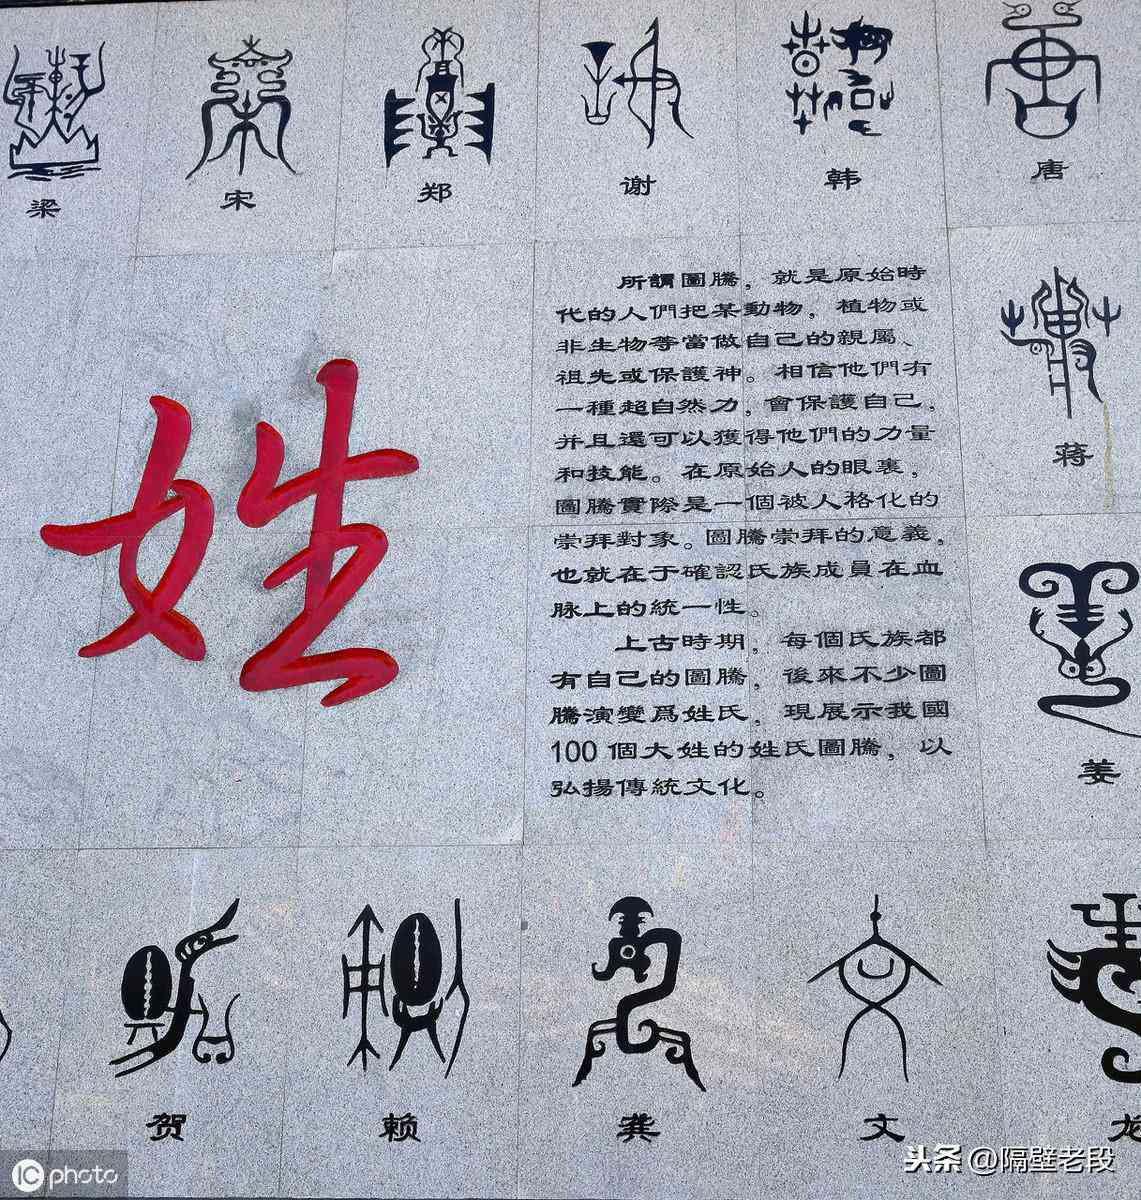 梁 宋 郑 谢 韩 唐
所謂圖騰，就是原始時
代的人們把某動物，植物或
非生物等當做自己的親屬、
祖先或保護神。相信他們有
一種超自然力，會保護自己，
并且還可以獲得他們的力量
和技能。在原始人的眼裏，
圖騰實際是一個被人格化的
崇拜對象。圖騰崇拜的意義，
也就在于確認氏族成員在血
脉上的統一性。
上古時期，每個氏族都
有自己的圖騰，後來不少圖
騰演變爲姓氏，現展示我國
100 個大姓的姓氏圖騰，以
弘揚傳統文化。
姓
蒋
姜
贺 赖 龚 文 龙
头条 @隔壁老段
iC photo